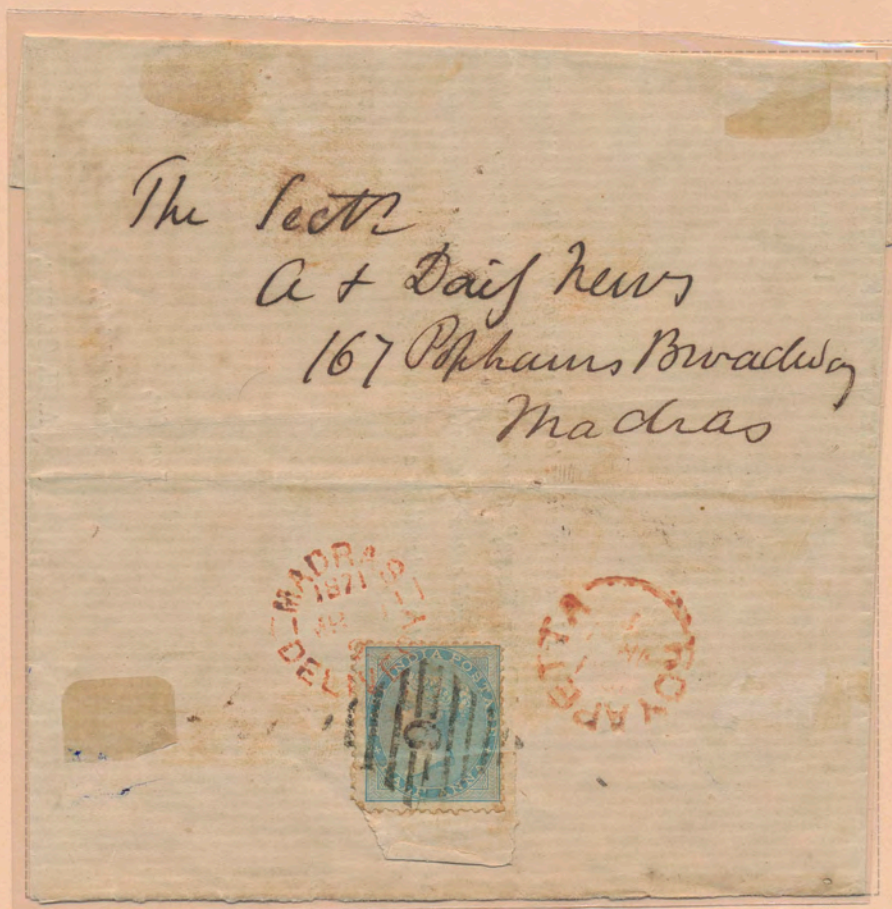 The Sectr
A & Daily News
167 Pophams Broadway
Madras
MADRAS
1871
DELIVERY
ROYAPETTA
INDIA POSTAGE
C
HALF ANNA